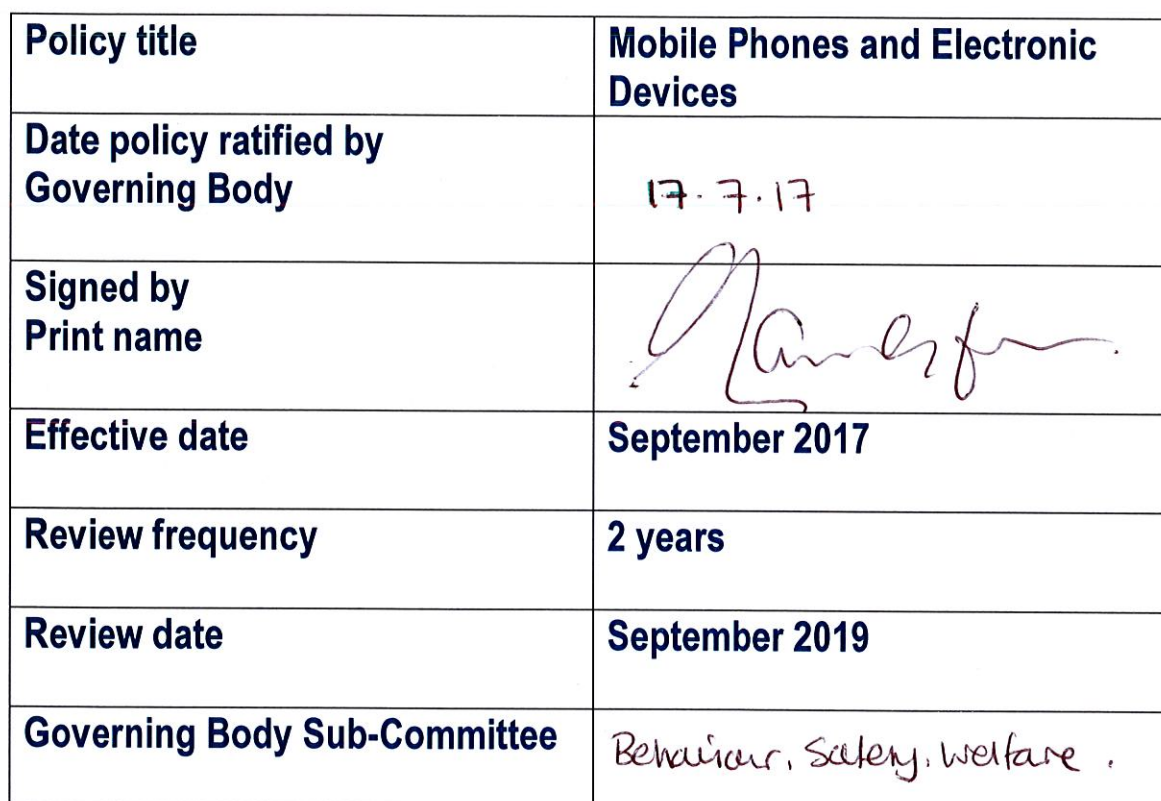 Policy title
Mobile Phones and Electronic
Devices
Date policy ratified by
Governing Body
17.7.17
Signed by
Print name
Effective date
September 2017
Review frequency
2 years
Review date
September 2019
Governing Body Sub-Committee
Behaviour, Safety, Welfare.